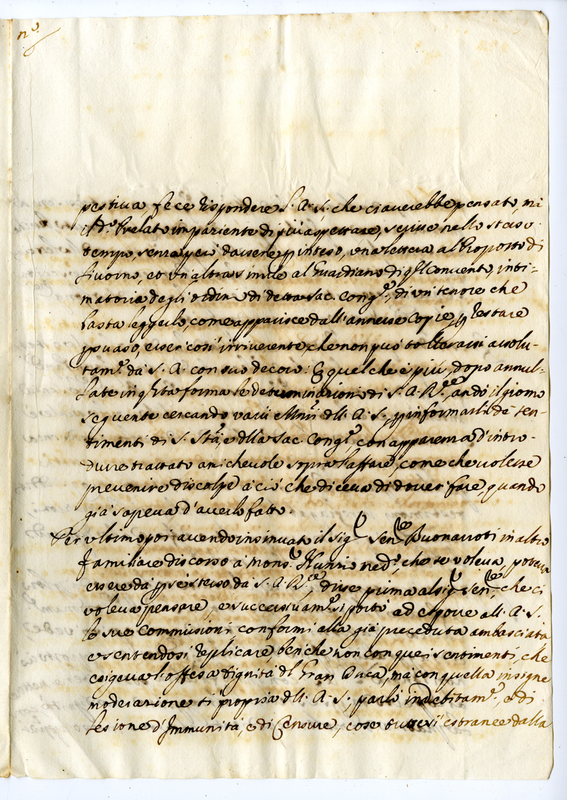 pestiva fece rispondere S. A. S. che ci averebbe pensato, mi
il do. Prelato impaziente di più aspettare, scrisse nello stesso
tempo, senza però darsene per inteso, una lettera al Proposto di
Livorno, et un'altra simile al Guardiano di qll Convento, inti-
matoria degli ordini di detta Sac. Congne, di un tenore che
basta leggerlo, come apparisce dall'annesse Copie, per restare
persuaso, esser così irriverente, che non può tollerarsi assolu-
tamte da S. A. con suo decoro: E quel che è più, dopo annul-
late in qsta forma le determinazioni di S. A. Rle, andò il giorno
seguente cercando varii Minri dll A. S. per informarli de sen-
timenti di S. Stà, e dlla Sac. Congne con apparenza d'intro-
durre trattato amichevole sopra l'affare, come che volesse
prevenire discolpe a ciò che diceva di dover fare, quando
già sapeva d'averlo fatto.
Per ultimo poi avendo insinuato il Sigr Senre Buonarroti in altro
familiare discorso a Monsr Nunzio medo, che se voleva, poteva
essere da per se stesso da S. A. Rle, disse prima al Sigr Senre che ci
voleva pensare, e successivamte si portò ad esporre all A. S.
le sue Commissioni conformi alla già preceduta ambasciata
e sentendosi replicare benche non con quei sentimenti, che
esigeva l'offesa dignità dl Gran Duca, ma con quella insigne
moderazione ti propria dll A. S. parlò indebitamte, e di
lesione d'Immunità, e di Censure, cose tutte estranee dalla